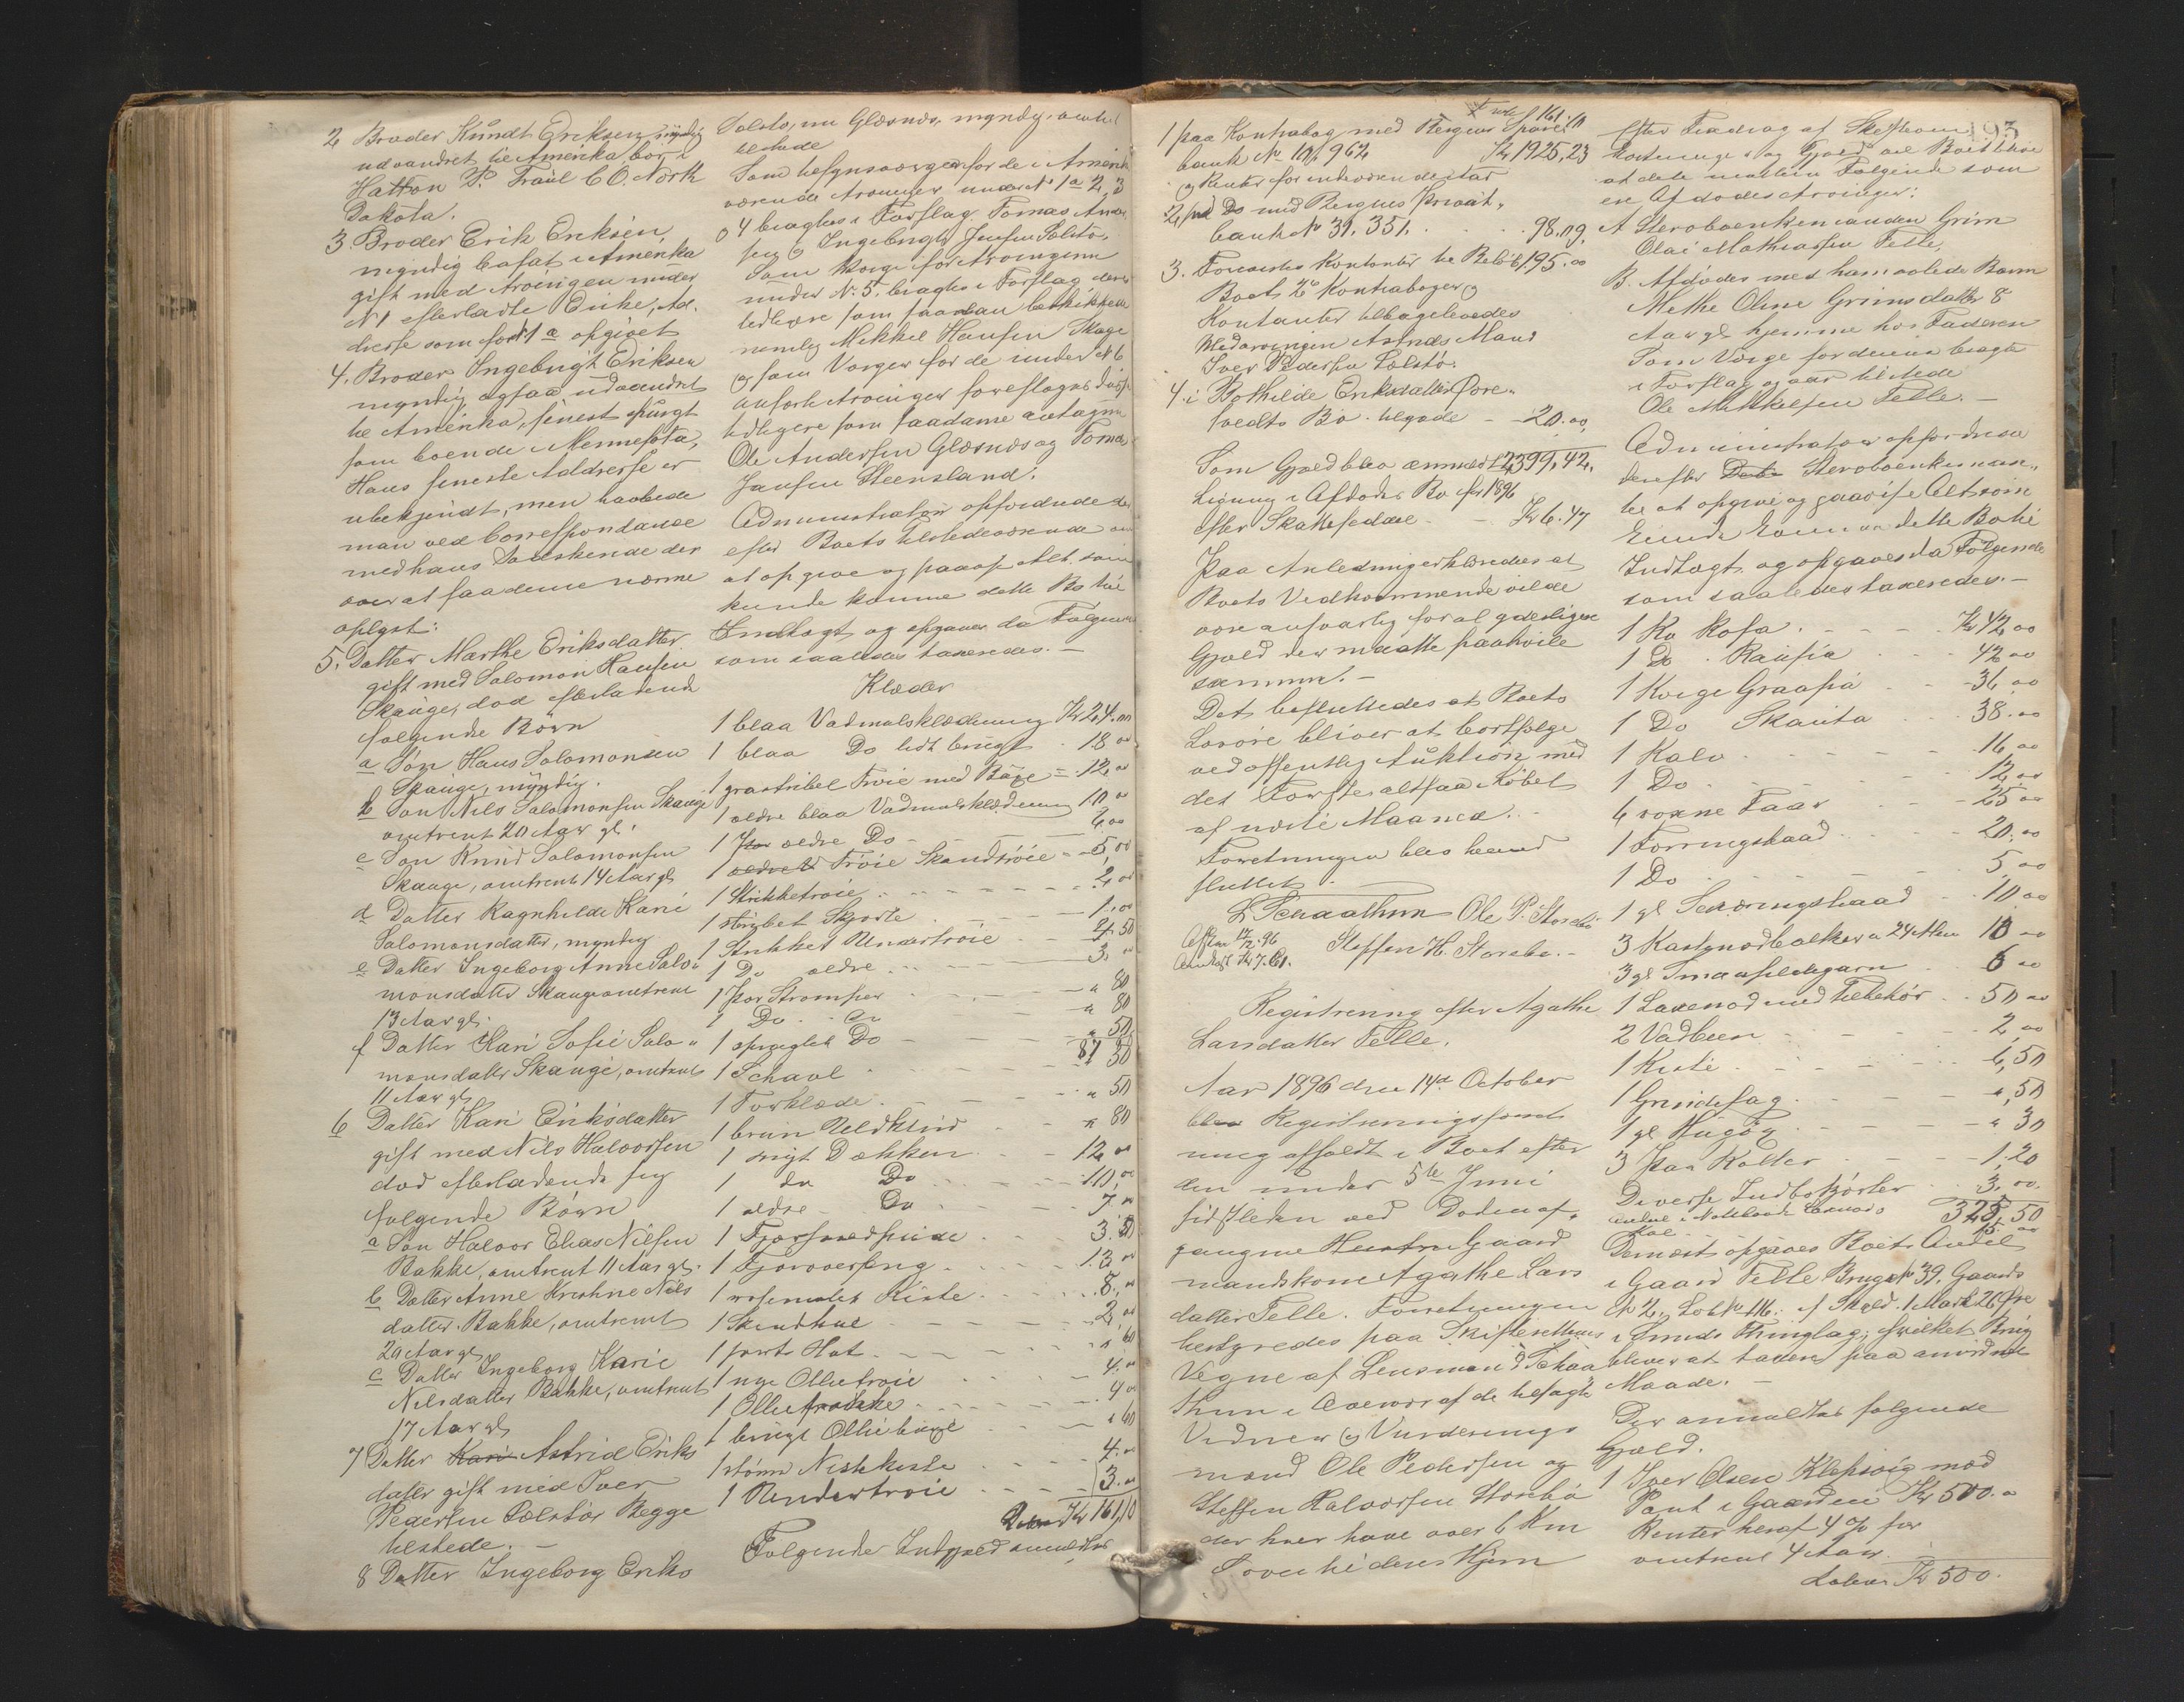 2 Broder Knudt Eriksen myndig
udvandret til Amerika, bor i
Hatton P. Traill C.O. North
Dakota.
3 Broder Erik Eriksen,
myndig bosat i Amerika
gift med Arvingen under
N 1 efterladte Enke, Ad.
dresse som for 1 a opgivet
4. Broder Ingebrigt Eriksen
myndig ogsaa udvandret
til Amerika, senest spurgt
som boende i Mennesota,
Hans seneste Addresse er
ubekjendt, men haabede
man ved Correspondance
med hans Sødskende der
over at faa denne nærme
oplyst:
5. Datter Marthe Eriksdatter
gift med Salomon Hansen
Skauge, død efterladende
følgende Børn
a Søn Hans Salomonsen
Skauge, myndig.
b Søn Nils Salomonsen Skauge
omtrent 20 Aar gl.
c Søn Knud Salomonsen
Skauge, omtrent 14 Aar gl
d Datter Ragnhilde Karie
Salomonsdatter, myndig
e Datter Ingeborg Anne Salo-
monsdatter Skauge omtrent
13 Aar gl.
f Datter Kari Sofie Salo-
monsdatter Skauge, omtrent
11 Aar gl
6 Datter Kari Eriksdatter
gift med Nils Halvorsen
død efterladende sig
følgende Børn
a Søn Halvor Elias Nilsen
Bakke, omtrent 11 Aar gl.
b Datter Anne Kristine Nils
datter Bakke, omtrent
20 Aar gl
c Datter Ingeborg Karie
Nilsdatter Bakke, omtrent
17 Aar gl
7 Datter Kari Astrid Eriks
datter gift med Iver
Pedersen Solstø. Begge
tilstede.
8 Datter Ingeborg Eriks
Solstø, nu Glæsnæs, myndig, omtrent
tilstede
Som tilsynsværger for de i Amerika
værende Arvinger under No 1 a 2, 3
o 4 bragtes i Forslag Tomas Ander
sen o Ingebrigt Jensen Solstø.
Som Værge for Arvingerne
under No 5. bragtes i Forslag deres
tidligere som saadan beskikkede
nemlig Mikkel Hansen Skage
o som Værger for de under No 6
anførte Arvinger foresloges disse
tidligere som saadanne antagne
Ole Andersen Glæsnæs og Tomas
Jansen Steensland.
Administrator opfordrede der
efter Boets tilstedeværende om
at opgive og paavise Alt som
kunde komme dette Bo til
Indtægt og opgaves da Følgende
som saaledes taxeredes. —
Klæder
1 blaa Vadmelsklædning Kr 24.00
1 blaa Do lidt brugt . 18 00
1 graastribet Trøie med Buxe 12 00
1 ældre blaa Vadmelsklædning 10 00
1 Par ældre Do 2,00
1 ældre Trøie Skandtrøie 5,00
1 Strikketrøie 2 00
1 stribet Skjorte 1.00
1 Strikket Undertrøie 2.50
1 Do ældre 3. 00
1 Par Strømper " 80
1 Do. do " 80
1 spraglet Do " 50
1 Schavl
1 Forklæde " 50
1 brun Uldklud " 80
1 nyt Dækken 12 00
1 do Do 10,00
1 ældre Do 7.00
1 Fjærhovedpude 3.50
1 Fjæroverseng 12 00
1 rosemalet Kiste 8.00
1 Skindhue 2,00
1 sort Hat " 60
1 nye Ollietrøie 4.00
1 Olliefrakke 4 00
1 brugt Ollie buxe " 60
1 større Nistekiste 4.00
1 Undertrøie 3.00
Kr 161,10
Følgende Indgjæld anmeldtes
193
1 paa Kontrabog med Bergens Spare-
bank No 101,962 Kr 1925,23
o Renter for indeværende Aar
2 paa Do med Bergens Privat-
bank No 31.351. 98,09.
3. Forevistes Kontanter til Beløb 195.00
Boets 2de Kontrabøger o
Kontanter tilbageleveredes
Medarvingen Astrids Mand
Iver Pedersen Solstø.
4. i Bothilde Eriksdatters Fore-
holdts Bo tilgode 20.00
Som Gjæld blev anmeldt 2399,42.
Ligning i Afdødes Bo for 1896
efter Skatteseddel Kr 6.47
Paa Anledning erklæredes at
Boets Vedkommende vilde
være ansvarlig for al gyldig
Gjæld der maatte paahvile
samme. —
Det besluttedes at Boets
Løsøre bliver at bortsælge
ved offentlig Auktion med
det Første altsaa Løbet
af næste Maaned.
Forretningen blev hermed
sluttet.
L Schaathun Ole P. Storebø
Steffen H. Storebø.
Registrering efter Agathe
Larsdatter Telle.
Aar 1896 den 14de October
blev Registreringsforret
ning afholdt i Boet efter
den under 5te Juni
sidstleden ved Døden af-
gangne Hustru Gaard
mandskone Agathe Lars
datter Telle. Forretningen
bestyredes paa Skifterettens
Vegne af Lensmand Schaa
thun i Overvær af de tilsagte
Vidner o Vurderings
mænd Ole Pedersen og
Steffen Halvorsen Storebø
der hver have over 6 Km
Forvei til deres Hjem
Efter Fradrag af Skifteom-
kostninger og Gjæld vil Boet blive
at dele mellem Følgende som
er Afdødes Arvinger:
A Sterboenkemanden Grim
Olai Mathiassen Telle,
B. Afdødes med ham avlede Barn
Methe Oline Grimsdatter 8
Aar gl. hjemme hos Faderen
Som Værge for denne bragte
i Forslag og var tilstede
Ole Mikkelsen Telle. —
Administrator opfordrede
derefter Sterboenkeman-
den at opgive og paavise Alt som
kunde komme dette Bo til
Indtægt og opgaves da Følgende
som saaledes taxeredes. —
1 Ko Rosa Kr 42 00
1 Do Rausia 42 00
1 Kvige Graasia 36 00
1 Do Skauta 38.00
1 Kalv 16,00
1 Do 12,00
6 voxne Faar 25 00
1 Færingsbaad 20.00
1 Do 5,00
1 gl Sexæringsbaad 10,00
3 Kastenodbolker a 24 Alen 10 00
3 gl Smaasildegarn 6 00
1 Laxenod med Tilbehør 50 00
2 Vadbeen 2,00
1 Kiste 6,50
1 Grindesag ",50
1 gl Hugøg " 30
3 Par Kolter 1.20
Diverse Indbobjørter 3.00.
325,50
Dernæst opgaves Boets Andel
i Gaard Telle Brugs No 39. Gaards
No 2, Løb No 116. af Skyld. 1 Mark 26 Øre
i Sunds Thinglag, hvilket Brug
bliver at taxere paa anordnet
Maade. —
Der anmeldtes følgende
Gjæld.
1 Iver Olsen Klepsvig mod
Pant i Gaarden Kr 500.00
Renter heraf 4 % for
omtrent 4 Aar.
Lateres Kr 500.